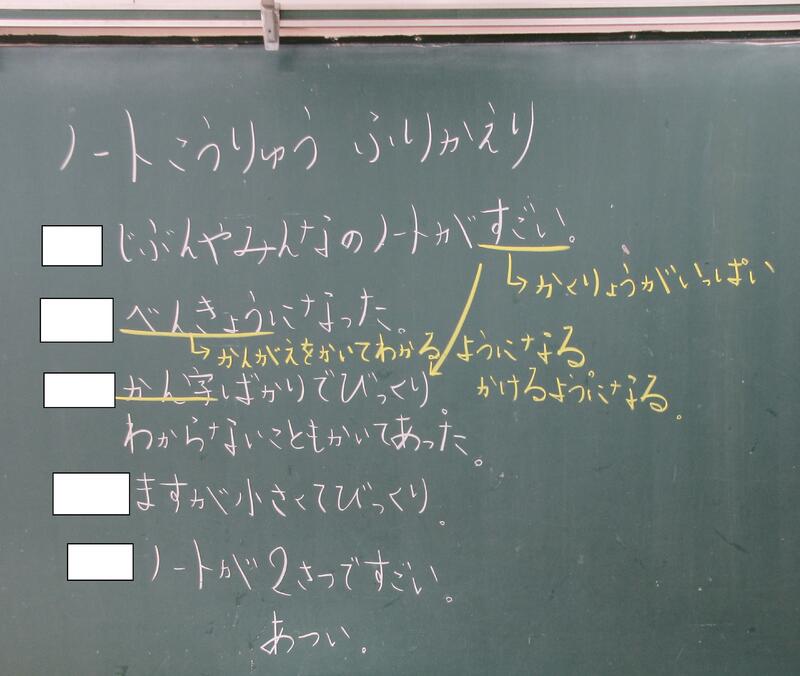 ノートこうりゅう ふりかえり
じぶんやみんなのノートがすごい。
↳かくりょうがいっぱい
べんきょうになった。
↳かんがえをかいてわかるようになる
かけるようになる。
かん字ばかりでびっくり
わからないこともかいてあった。
ますが小さくてびっくり。
ノートが2さつですごい。
あつい。